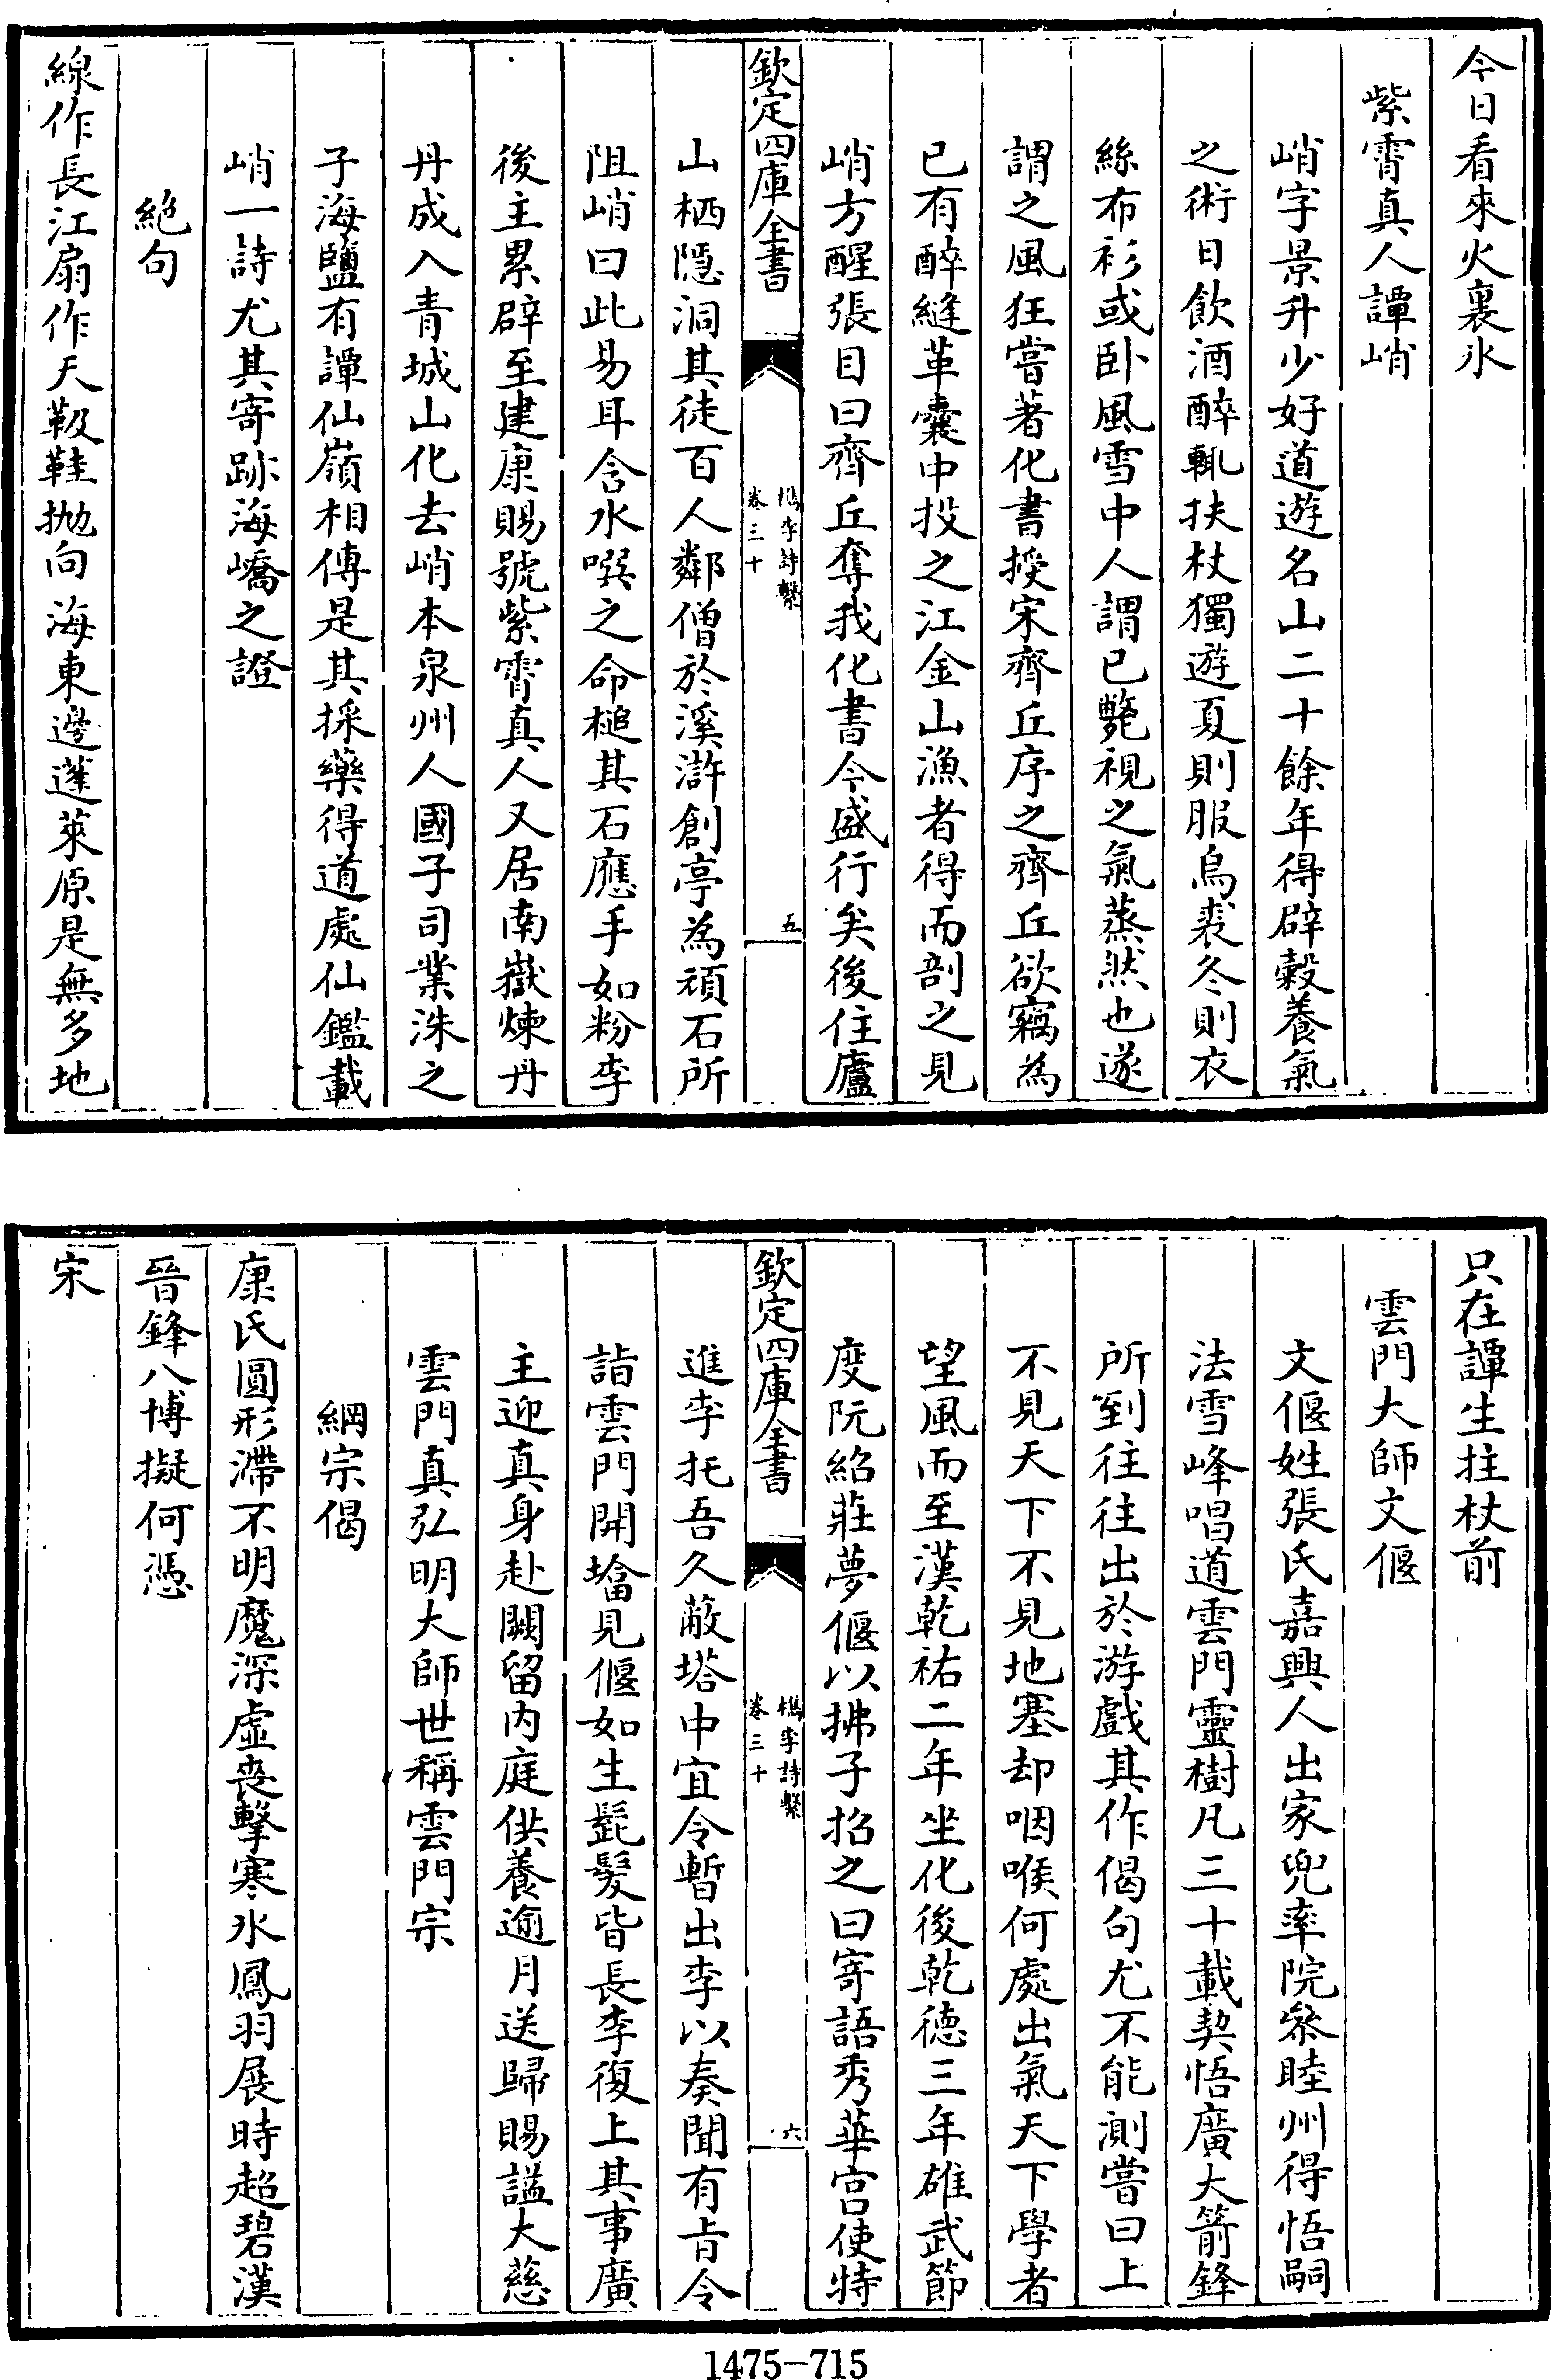 今日看來火裏氷
紫霄真人譚峭
峭字景升少好道遊名山二十餘年得辟穀養氣
之術日飲酒醉輒扶杖獨遊夏則服烏裘冬則衣
絲布衫或卧風雪中人謂已斃視之氣蒸然也遂
謂之風狂嘗著化書授宋齊丘序之齊丘欲竊為
已有醉縫革囊中投之江金山漁者得而剖之見
峭方醒張目曰齊丘奪我化書今盛行矣後住廬
欽定四庫全書
檇李詩繫
卷三十
五
山栖隱洞其徒百人鄰僧於溪滸創亭為頑石所
阻峭曰此易耳含水噀之命槌其石應手如粉李
後主累辟至建康賜號紫霄真人又居南嶽煉丹
丹成入青城山化去峭本泉州人國子司業洙之
子海鹽有譚仙嶺相傳是其採藥得道處仙鑑載
峭一詩尤其寄跡海嶠之證
絶句
線作長江扇作天靸鞋抛向海東邊蓬萊原是無多地
只在譚生拄杖前
雲門大師文偃
文偃姓張氏嘉興人出家兜率院叅睦州得悟嗣
法雪峰唱道雲門靈樹凡三十載契悟廣大箭鋒
所到往往出於游戲其作偈句尤不能測嘗曰上
不見天下不見地塞却咽喉何處出氣天下學者
望風而至漢乾祐二年坐化後乾德三年雄武節
度阮紹莊夢偃以拂子招之曰寄語秀華宫使特
欽定四庫全書
檇李詩繫
卷三十
六
進李托吾久蔽塔中宜令暫出李以奏聞有旨令
詣雲門開墖見偃如生髭髮皆長李復上其事廣
主迎真身赴闕留内庭供養逾月送歸賜謚大慈
雲門真弘明大師世稱雲門宗
綱宗偈
康氏圓形滯不明魔深虛喪擊寒氷鳳羽展時超碧漢
晉鋒八博擬何憑
宋
1475-715